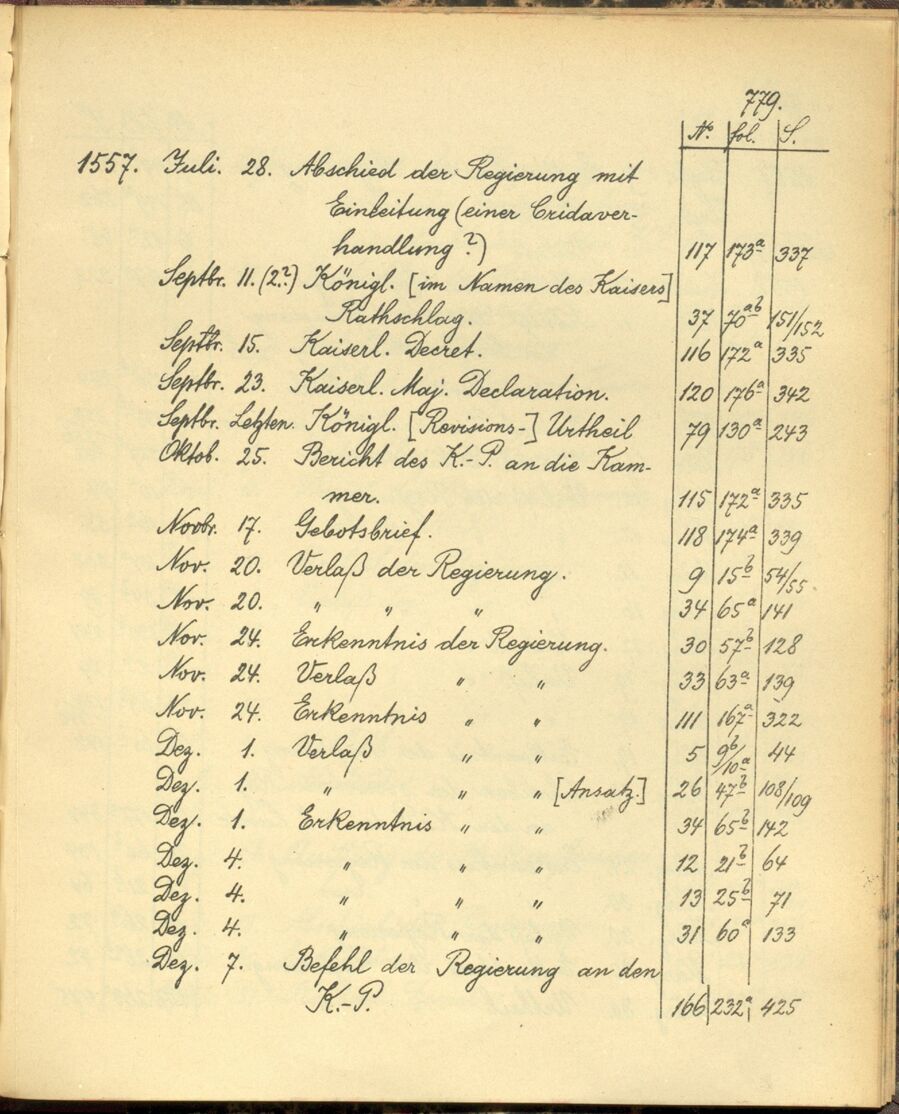 779.
N°. fol. S.
1557. Juli. 28. Abschied der Regierung mit
Einleitung (einer Cridaver-
handlung?) 117 173a 337
Septbr. 11. (2.?) Königl. [im Namen des Kaisers]
Rathschlag. 37 70ab 151/152
Septbr. 15. Kaiserl. Decret. 116 172a 335
Septbr. 23. Kaiserl. Maj. Declaration. 120 176a 342
Septbr. Letzten. Königl. [Revisions-] Urtheil 79 130a 243
Oktob. 25. Bericht des K.-P. an die Kam-
mer. 115 172a 335
Novbr. 17. Gebotsbrief. 118 174a 339
Nov. 20. Verlaß der Regierung. 9 15b 54/55.
Nov. 20. " " " 34 65a 141
Nov. 24. Erkenntnis der Regierung. 30 57b 128
Nov. 24. Verlaß " " 33 63a 139
Nov. 24. Erkenntnis " " 111 167a 322
Dez. 1. Verlaß " " 5 9b/10a 44
Dez. 1. " " " [Ansatz.] 26 47b 108/109
Dez. 1. Erkenntnis " " 34 65b 142
Dez. 4. " " " 12 21b 64
Dez. 4. " " " 13 25b 71
Dez. 4. " " " 31 60a 133
Dez. 7. Befehl der Regierung an den
K.-P. 166 232a 425